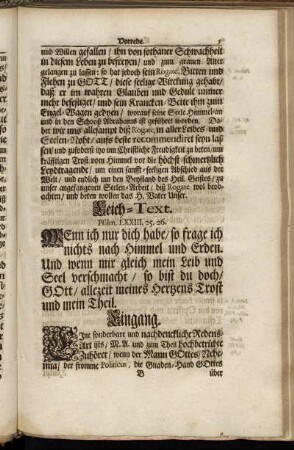 Vorrede. 5
und Willen gefallen / ihn von sothaner Schwachheit
in diesem Leben zu befreyen / und zum grauen Alter
gelangen zu lassen: so hat jedoch sein Rogate, Bitten und
Flehen zu GOTT / diese seelige Würckung gehabt /
daß er im wahren Glauben und Gedult immer
mehr befestiget / und sein Krancken-Bette ihm zum
Engel-Wagen gedyen / worauf seine Seele Himmel-an
und in den Schooß Abrahams ist geführet worden. Da-
her wir uns allesampt diß Rogate, in aller Leibes- und
Seelen-Noht / aufs beste recommendiret seyn las-
sen / und zuförderst itzo um Christliche Freudigkeit zu beten / um
kräfftigen Trost vom Himmel vor die höchst-schmertzlich
Leydtragende / um einen sanfft-seeligen Abschied aus der
Welt / und endlich um den Beystand des Heil. Geistes / zu
unser angefangenen Seelen-Arbeit / diß Rogate wol beob-
achten / und beten wollen das H. Vater Unser.
Leich-Text.
Psalm. LXXIII, 25. 26.
WEnn ich nur dich habe / so frage ich
nichts nach Himmel und Erden.
Und wenn mir gleich mein Leib und
Seel verschmacht / so bist du doch /
GOtt / allezeit meines Hertzens Trost
und mein Theil.
Eingang.
EJne sonderbare und nachdenckliche Redens-
Art ists / M. A. und zum Theil hochbetrübte
Zuhörer / wenn der Mann GOttes / Nehe-
mia / der fromme Politicus, die Gnaden-Hand GOttes
B über